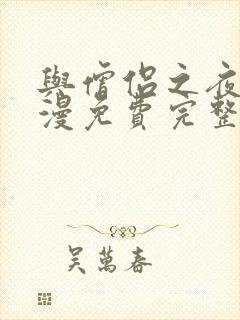 與僧侶之夜
漫免費完整
吳萬春